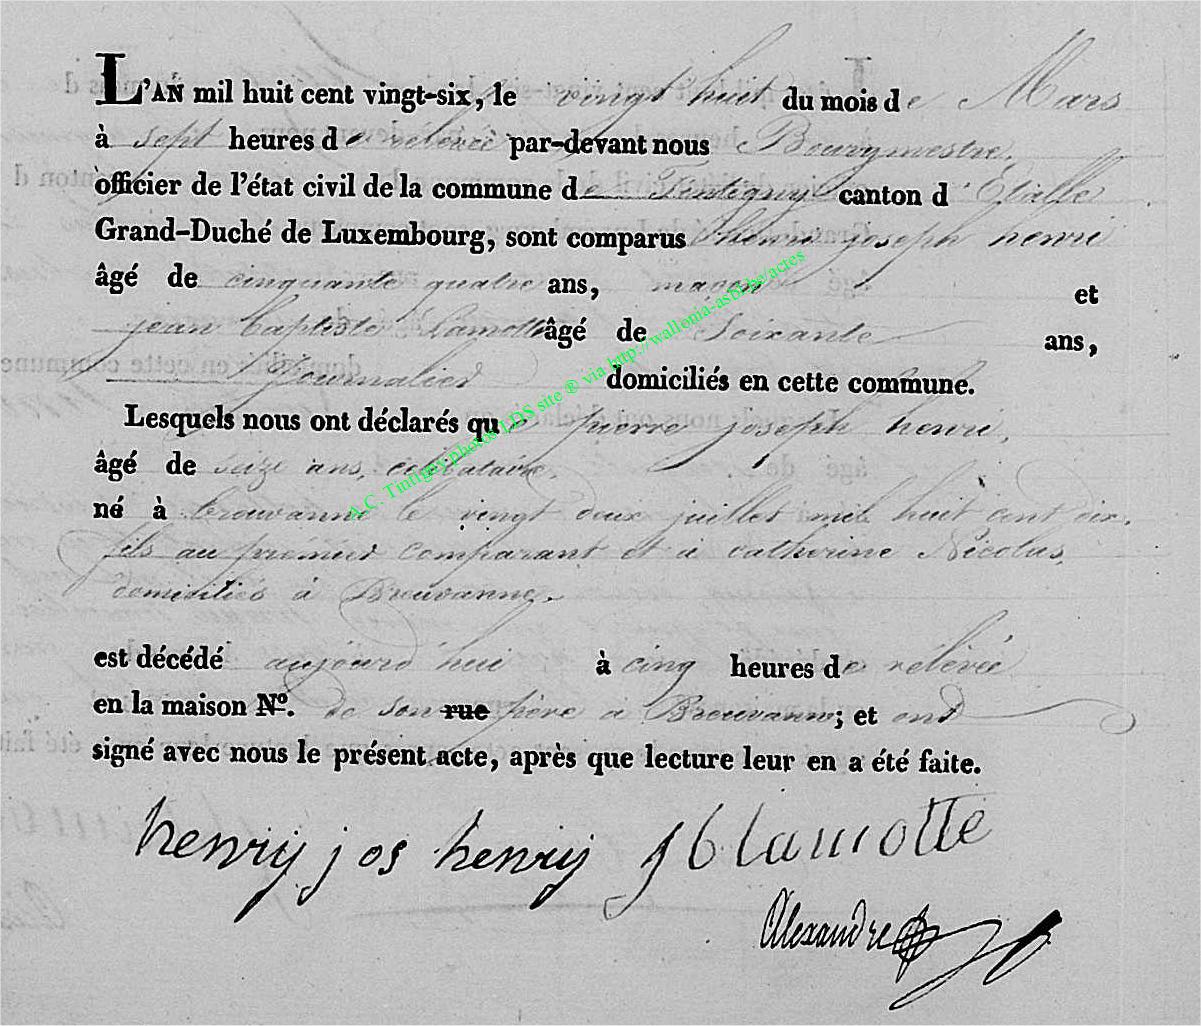 L'AN mil huit cent vingt-six, le vingt huit du mois de Mars
à sept heures de relevée par-devant nous Bourgmestre,
officier de l'état civil de la commune de Tintigny canton d'Etalle
Grand-Duché de Luxembourg, sont comparus henri joseph henri
âgé de cinquante quatre ans, maçon et
jean baptiste Lamotte âgé de Soixante ans,
journalier domiciliés en cette commune.
Lesquels nous ont déclarés que pierre joseph henri,
âgé de seize ans, celibataire,
né à breuvanne le vingt deux juillet mil huit cent dix,
fils au premier comparant et à catherine Nicolas,
domiciliés à Breuvanne,
est décédé aujourd'hui à cinq heures de relévée
en la maison N°. de son rue père a Breuvanne; et ont
signé avec nous le présent acte, après que lecture leur en a été faite.
henrij jos henrij J b lamotte
Alexandre
A.C. Tintigny photos LDS site ® via http://wallonia-asbl.be/actes